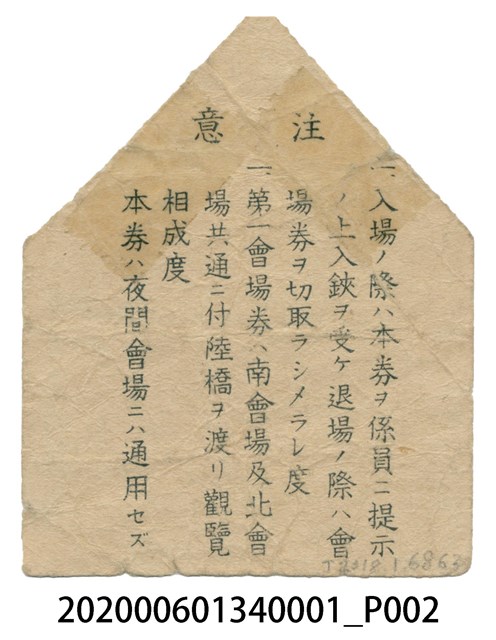 注意
一、入場ノ際ハ本券ヲ係員ニ提示
ノ上入鋏ヲ受ケ退場ノ際ハ會
場券ヲ切取ラシメラレ度
一、第一會場券ハ南會場及北會
場共通ニ付陸橋ヲ渡リ觀覽
相成度
本券ハ夜間會場ニハ通用セズ
T2018.1.6863
202000601340001_P002